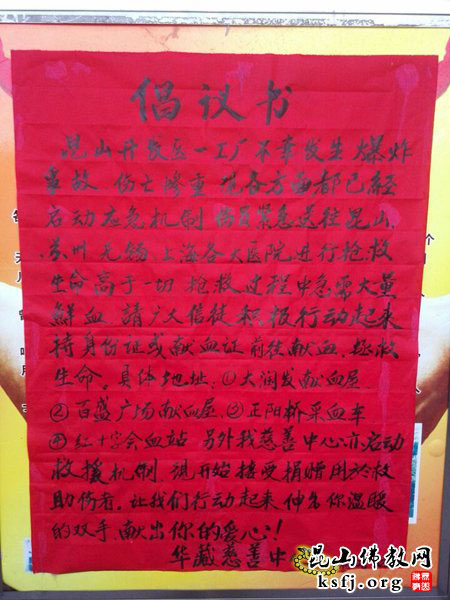 倡议书
昆山开发区一工厂不幸发生爆炸
事故.伤亡惨重.现各方面都已经
启动应急机制 伤员紧急送往昆山、
苏州 无锡、上海各大医院进行抢救
生命高于一切 抢救过程中急需大量
鲜血 請广大信徒积极行动起来
持身份证或献血证 前往献血.拯救
生命。具体地址:①大润发献血屋
②百盛广场献血屋.③正阳桥采血车
④红十字会血站 另外我慈善中心亦启动
救援机制.现开始接受捐赠用於救
助伤者.让我们行动起来 伸出你温暖
的双手.献出你的爱心!
华藏慈善中
昆山佛教网
ksfj.org